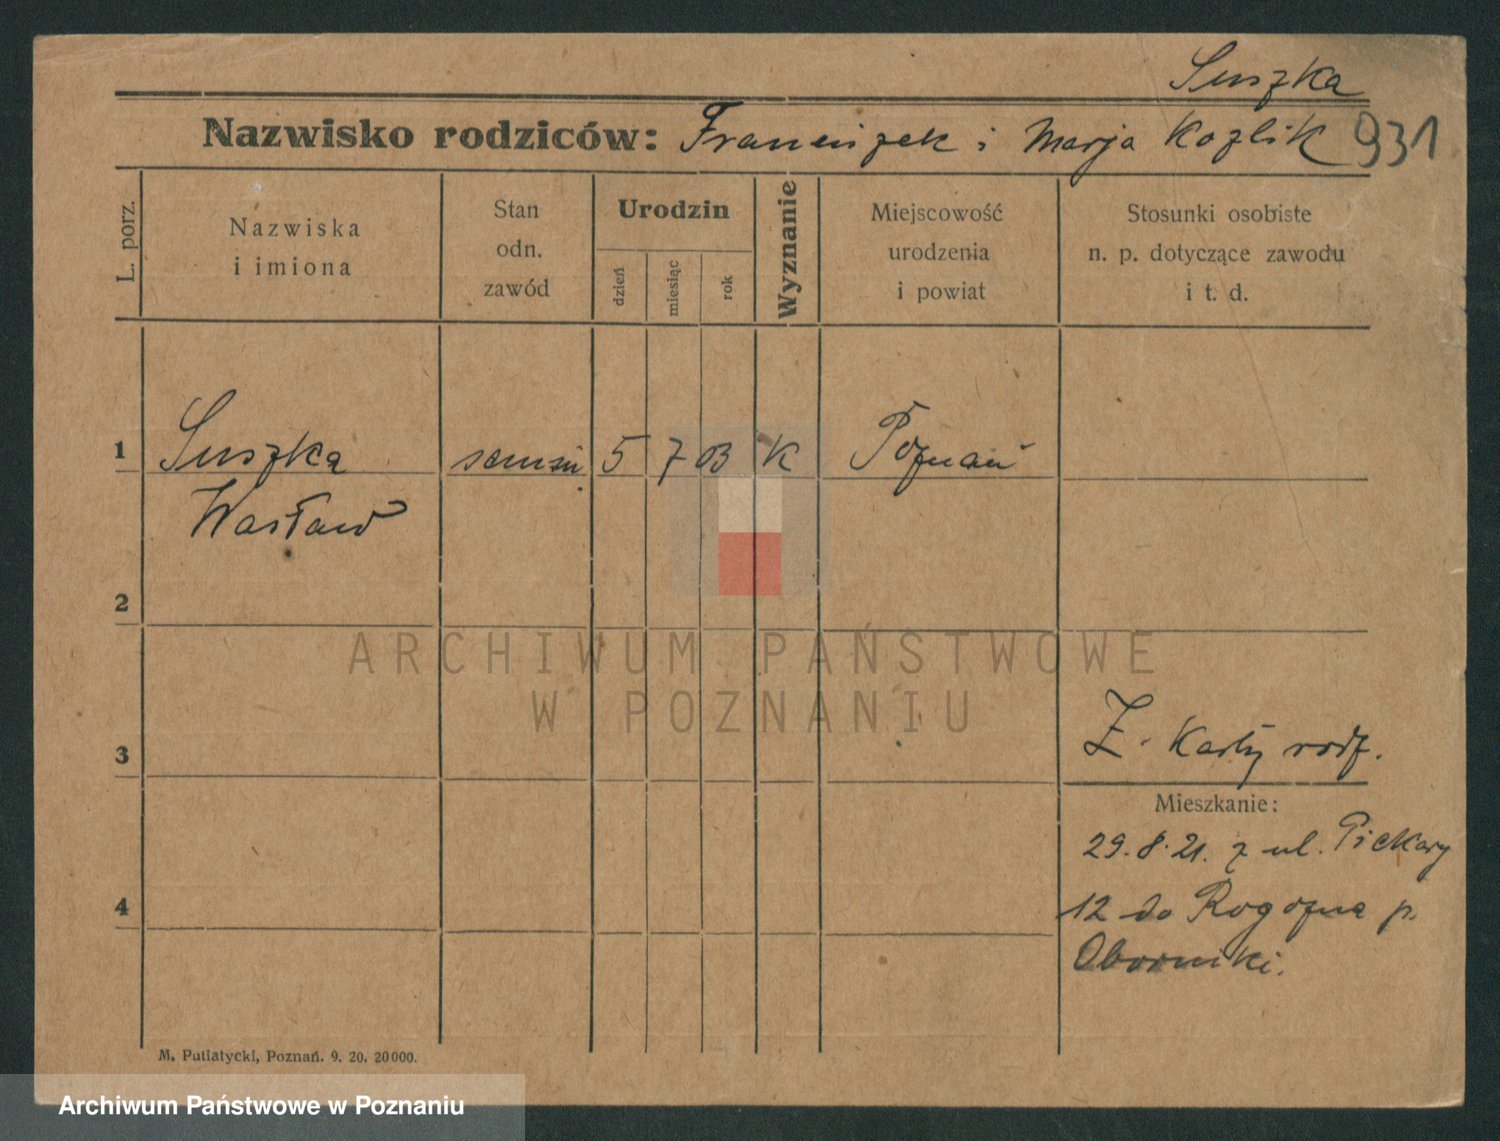 Suszka
Nazwisko rodziców: Franciszek i Marja Kozlik 931
L. porz.
Nazwiska
i imiona
Stan
odn.
zawód
Urodzin
dzień
miesiąc
rok
Wyznanie
Miejscowość
urodzenia
i powiat
Stosunki osobiste
n. p. dotyczące zawodu
i t. d.
1 Suszka 5 7 03 K Poznań
Wacław
2
ARCHIWUM PAŃSTWOWE
W POZNANIU
3 Z. Karty rodz.
Mieszkanie:
29.8.21. z ul. Piekary
4 12 do Rogozna p.
Oborniki.
M. Putiatycki, Poznań. 9. 20. 20000.
Archiwum Państwowe w Poznaniu